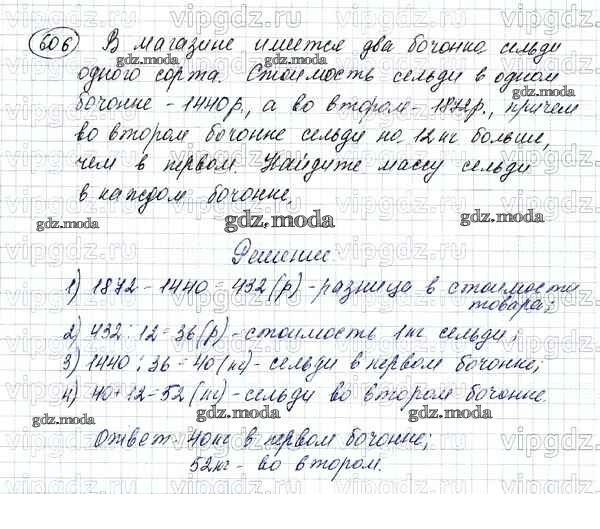 606 В магазине имеется два бочонка сельди
одного сорта. Стоимость сельди в одном
бочонке - 1440р., а во втором - 1872р., причем
во втором бочонке сельди на 12кг больше,
чем в первом. Найдите массу сельди
в каждом бочонке.
Решение.
1) 1872 - 1440 = 432 (р) - разница в стоимости
товара;
2) 432 : 12 = 36 (р) - стоимость 1кг сельди;
3) 1440 : 36 = 40 (кг) - сельди в первом бочонке;
4) 40 + 12 = 52 (кг) - сельди во втором бочонке.
Ответ: 40кг в первом бочонке;
52кг - во втором.
gdz.moda
vipgdz.ru